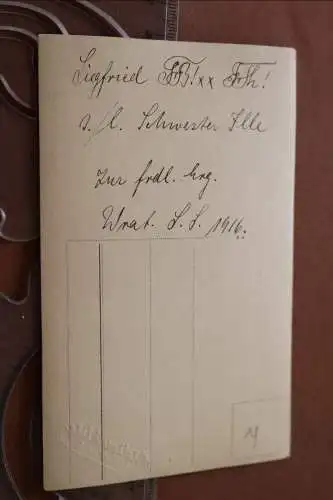 Siegfried FT! xx FTh!
s. lb. Schwester Elle
zur frdl. Erg.
Wrat. S. S. 1916.
M